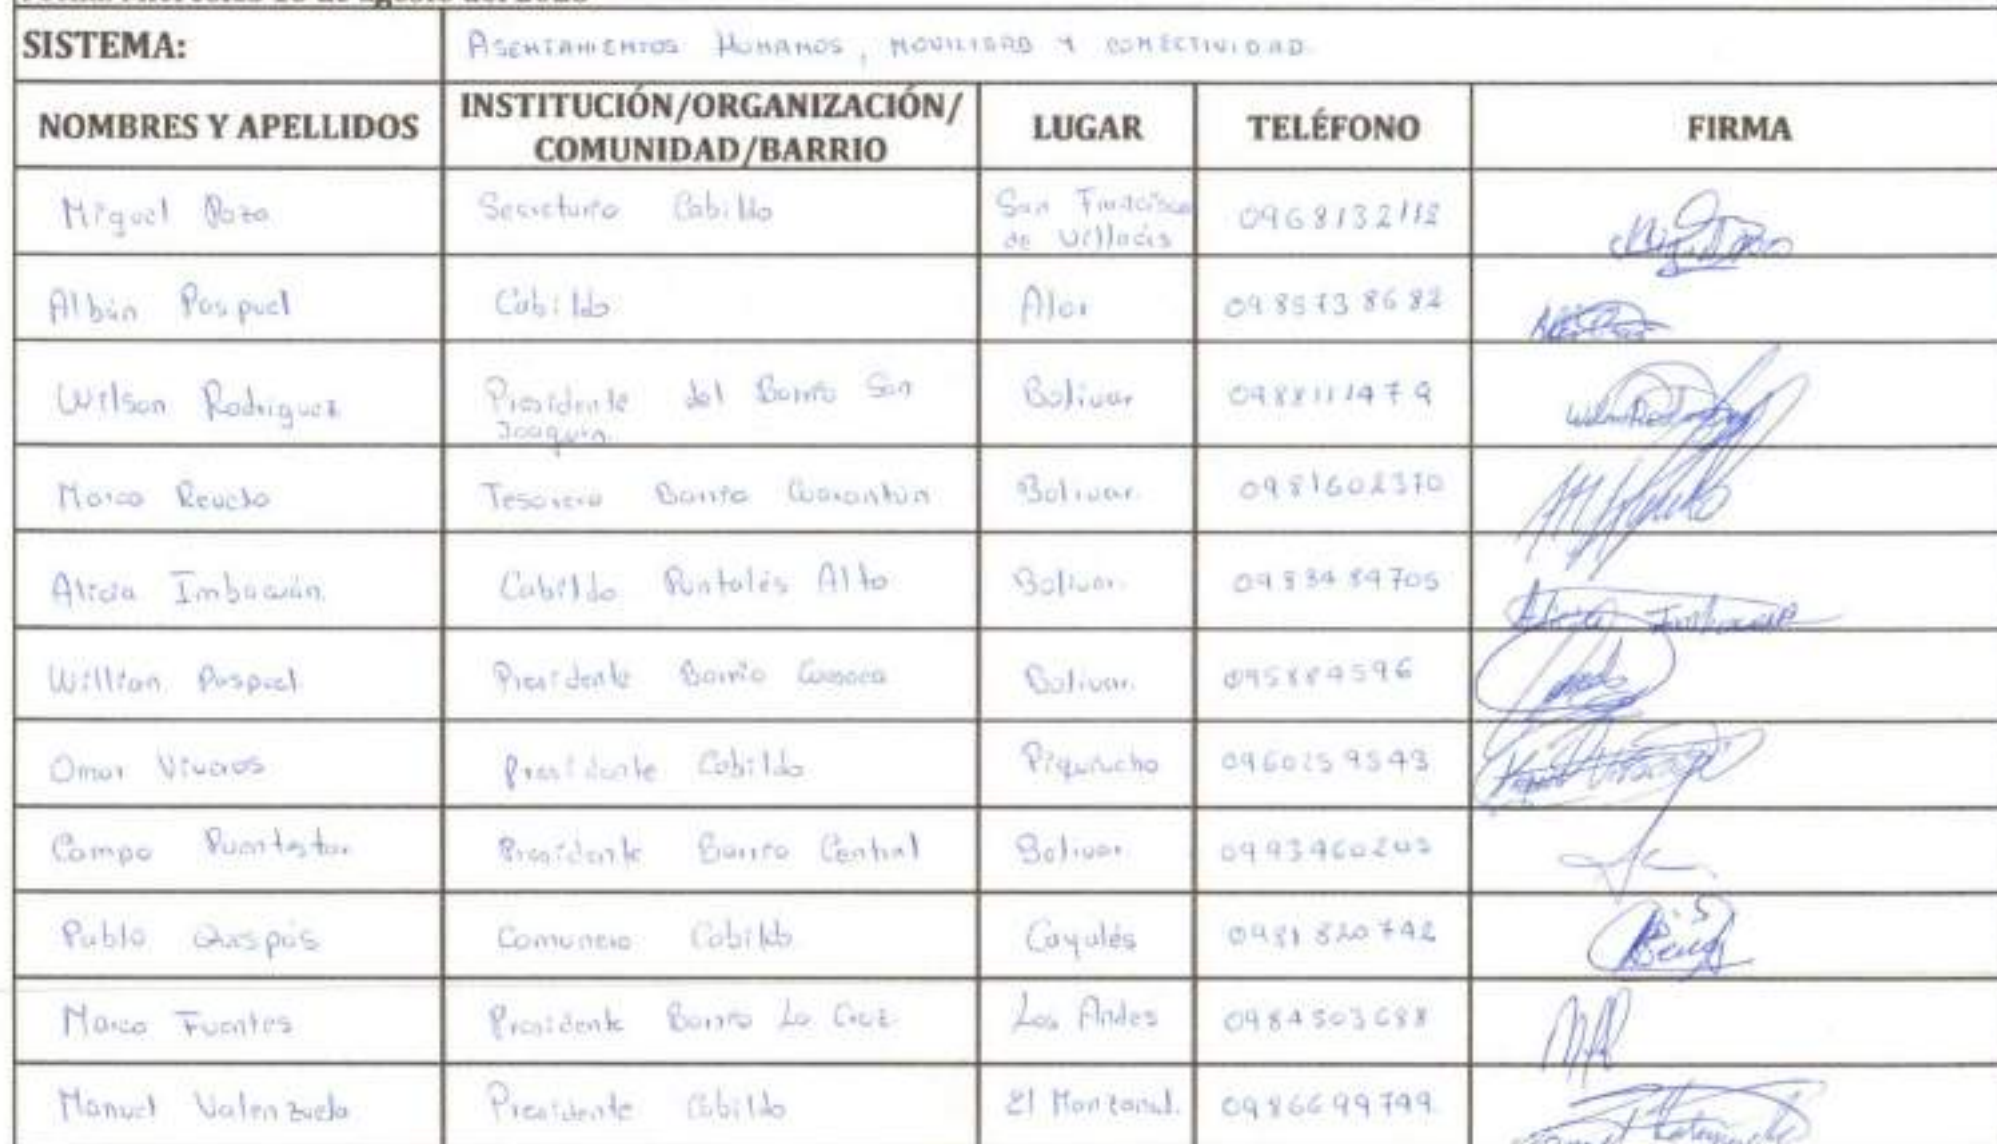 SISTEMA: ASENTAMIENTOS HUMANOS, MOVILIDAD Y CONECTIVIDAD
NOMBRES Y APELLIDOS INSTITUCIÓN/ORGANIZACIÓN/ COMUNIDAD/BARRIO LUGAR TELÉFONO FIRMA
Miguel Pozo Secretario Cabildo San Francisco de Villacís 0968132112
Albán Pospuel Cabildo Alor 0985738682
Wilson Rodriguez Presidente del Barrio San Joaquín. Bolivar 0988111479
Marco Revelo Tesorero Barrio Cuarantún Bolivar. 0981602370
Alicia Imbacuán. Cabildo Puntalés Alto Bolivar. 0983484705
Willian Pospuel Presidente Barrio Bolivar. 095884596
Omar Viveros Presidente Cabildo Piquiucho 0960259543
Campo Puentestar Presidente Barrio Central Bolivar. 0993460203
Pablo Quspás Comunero Cabildo Cayalés 0981820742
Marco Fuentes Presidente Barrio La Cruz Los Andes 0984503688
Manuel Valenzuela Presidente Cabildo El Manzanal. 0986699799